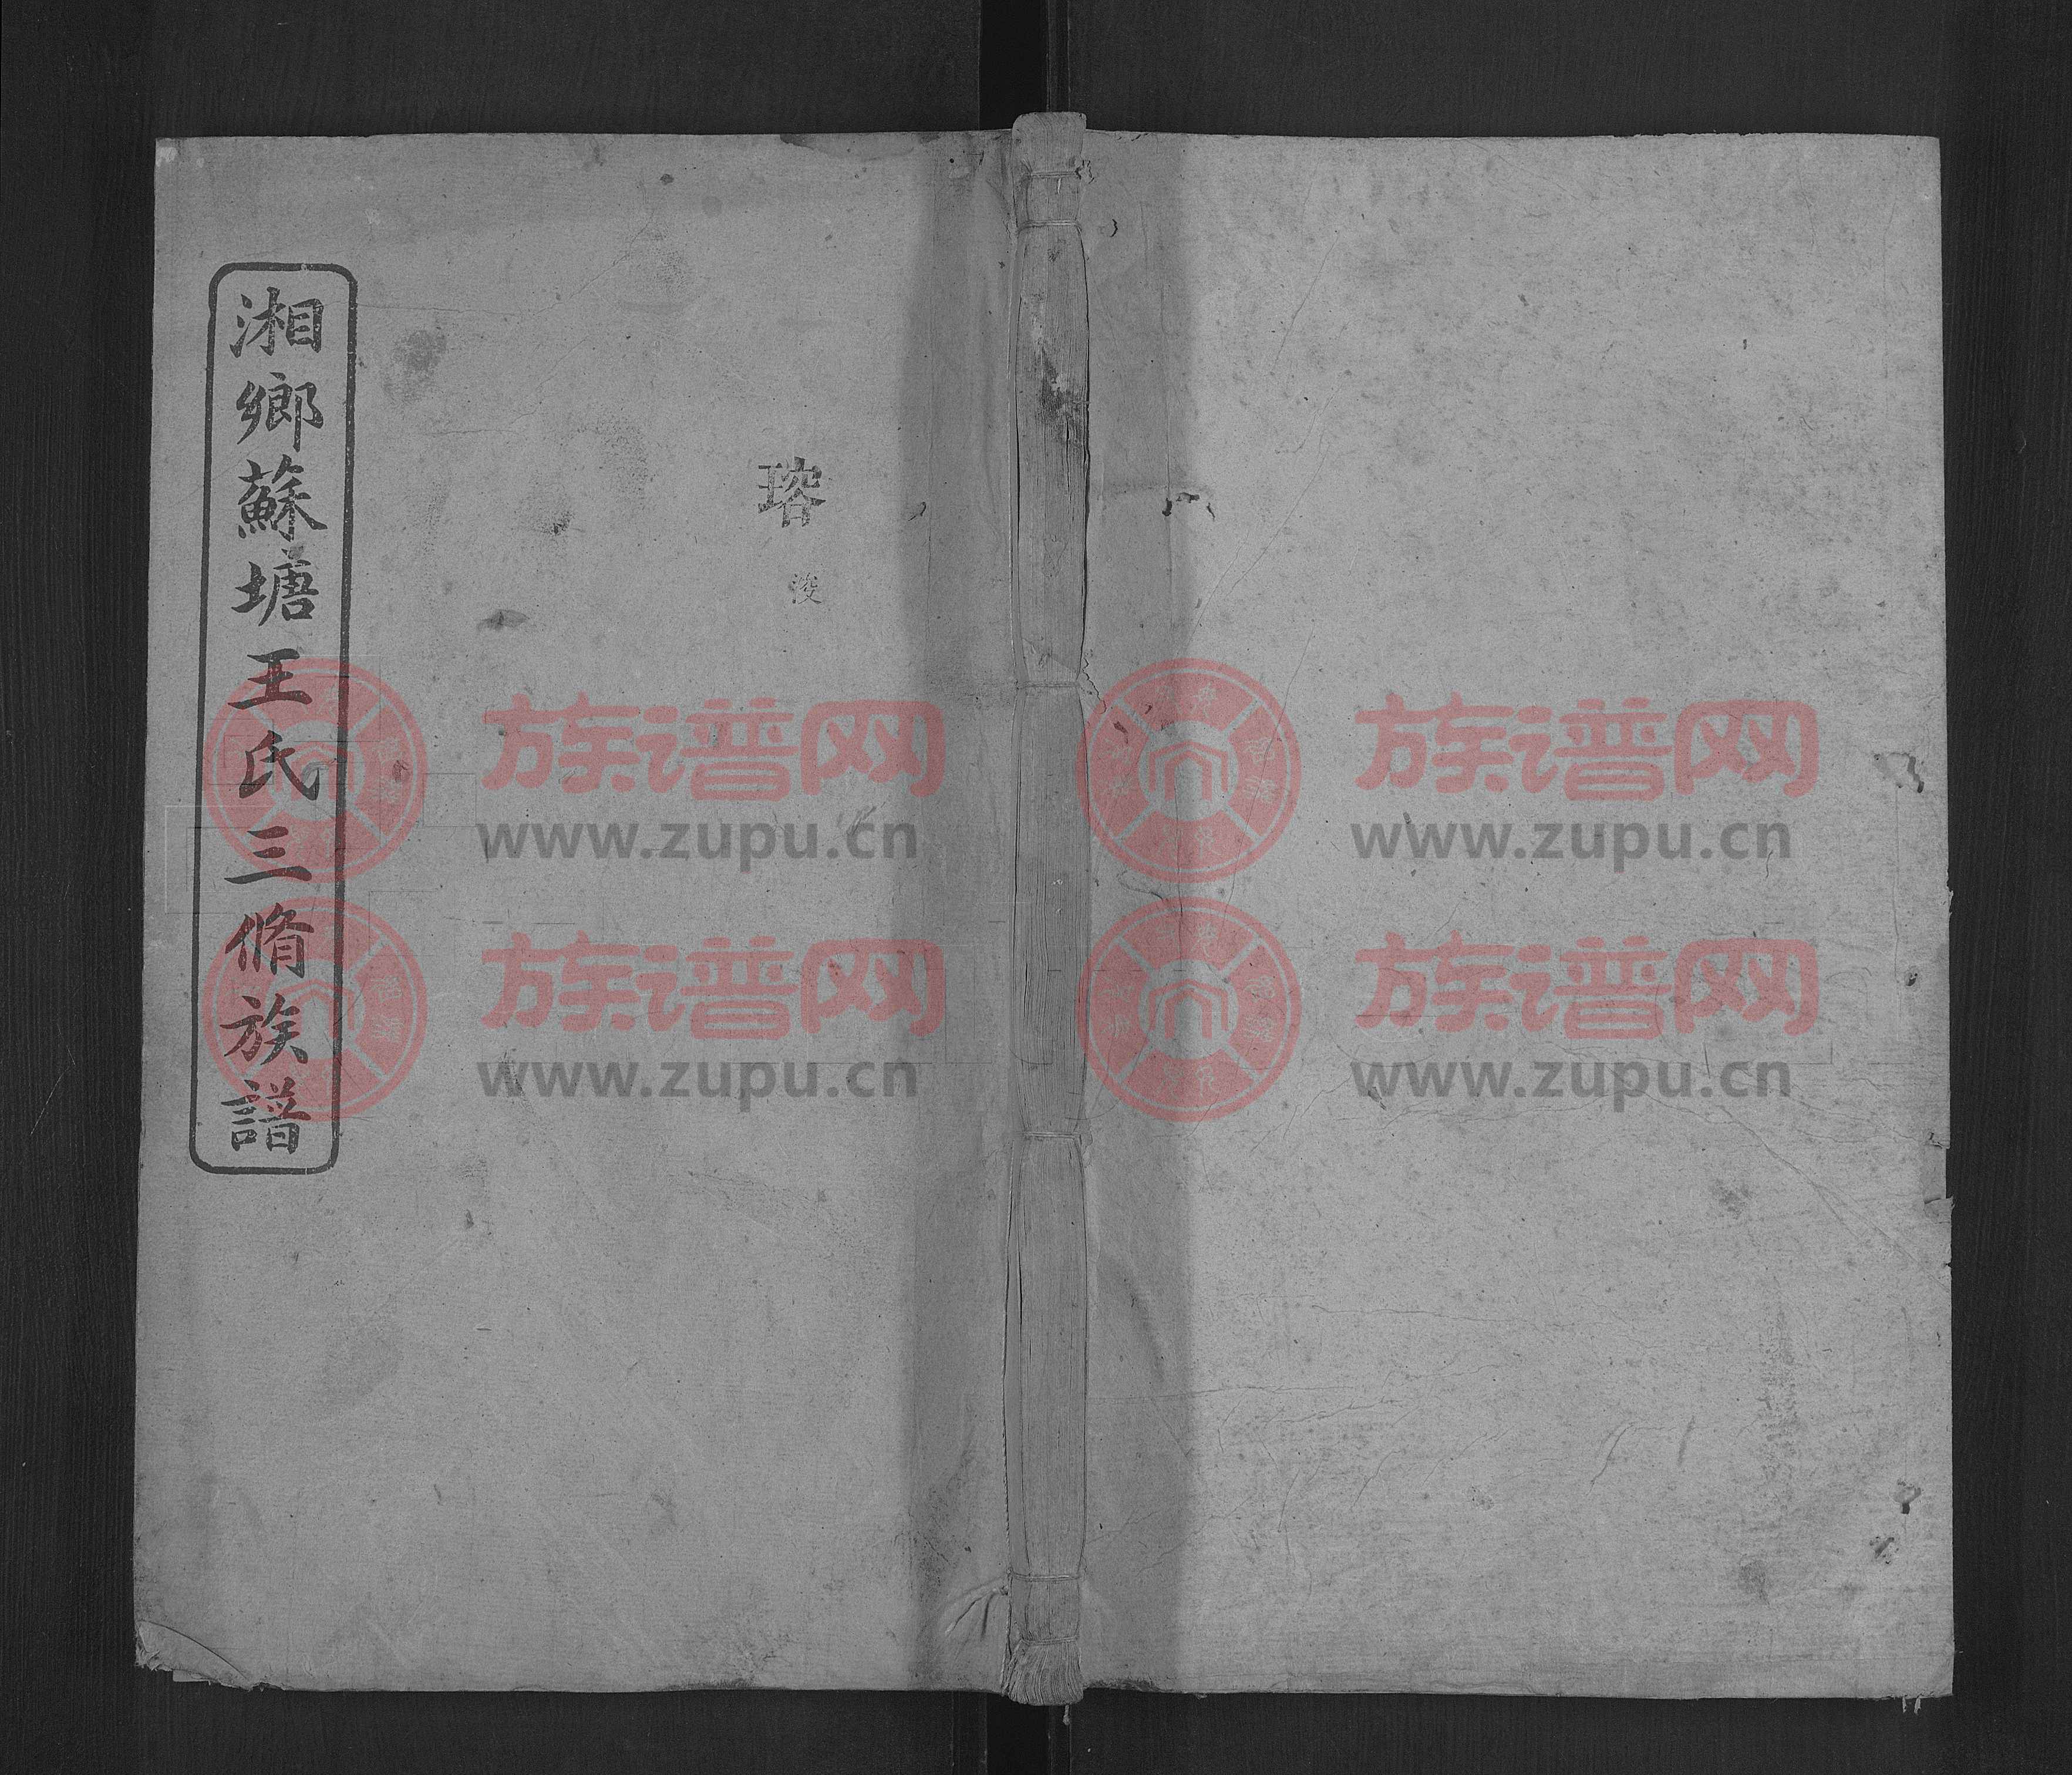 湘鄉蘇塘王氏三脩族譜
瑢
浚
族谱网
www.zupu.cn
族谱网
www.zupu.cn
族谱网
www.zupu.cn
族谱网
www.zupu.cn